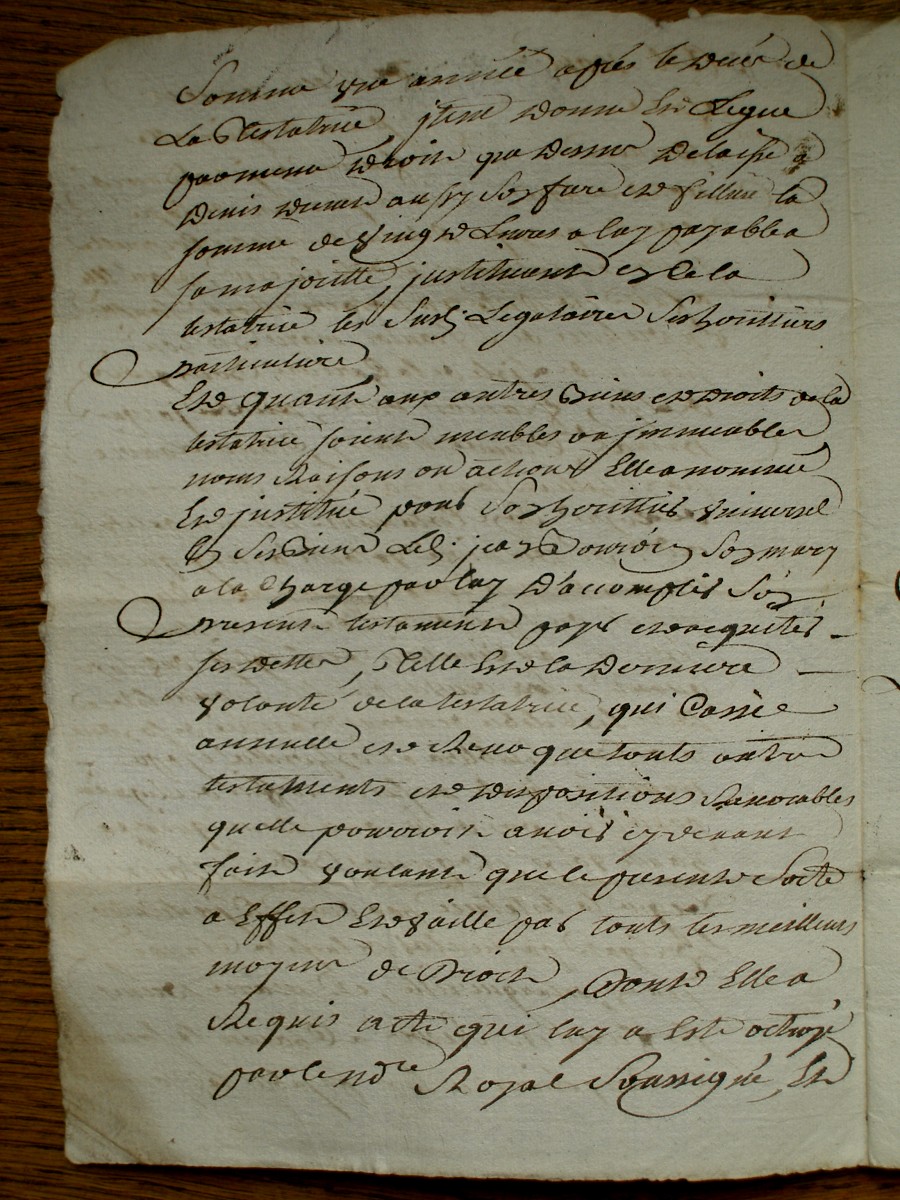 Somme une année apres le deces de
La Testatrice, jtem donne Et Legue
par mesme droit que Dessus Delaisse a
Denis aussy Son frere et filleul la
somme de vingt Livres a luy payable a
sa majoitte, justituant Celle la
testatrice les Susd. Legataires Ses hoittiers
particuliers
Et quant aux autres Biens et droits de la
testatrice soient meubles ou jmmeubles
noms Raisons ou actions Elle a nommé
Et justitué pour Son hoittier universel
Le Sr Led. jean Son mary
a la Charge par luy D'accomplir Son
present testament payer et acquiter
ses dettes, Telle Est la Derniere
volonté de la testatrice, qui Casse
annulle et Revoque touts autres
testaments et dispositions Revocables
quelle pourroit avoir cy devant
fait voulant que le present Sorte
a Effet Et vaille par touts les meilleurs
moyens de Droit, Dont Elle a
Requis acte qui luy a Esté octroyé
par le nore Royal Soussigné, Et